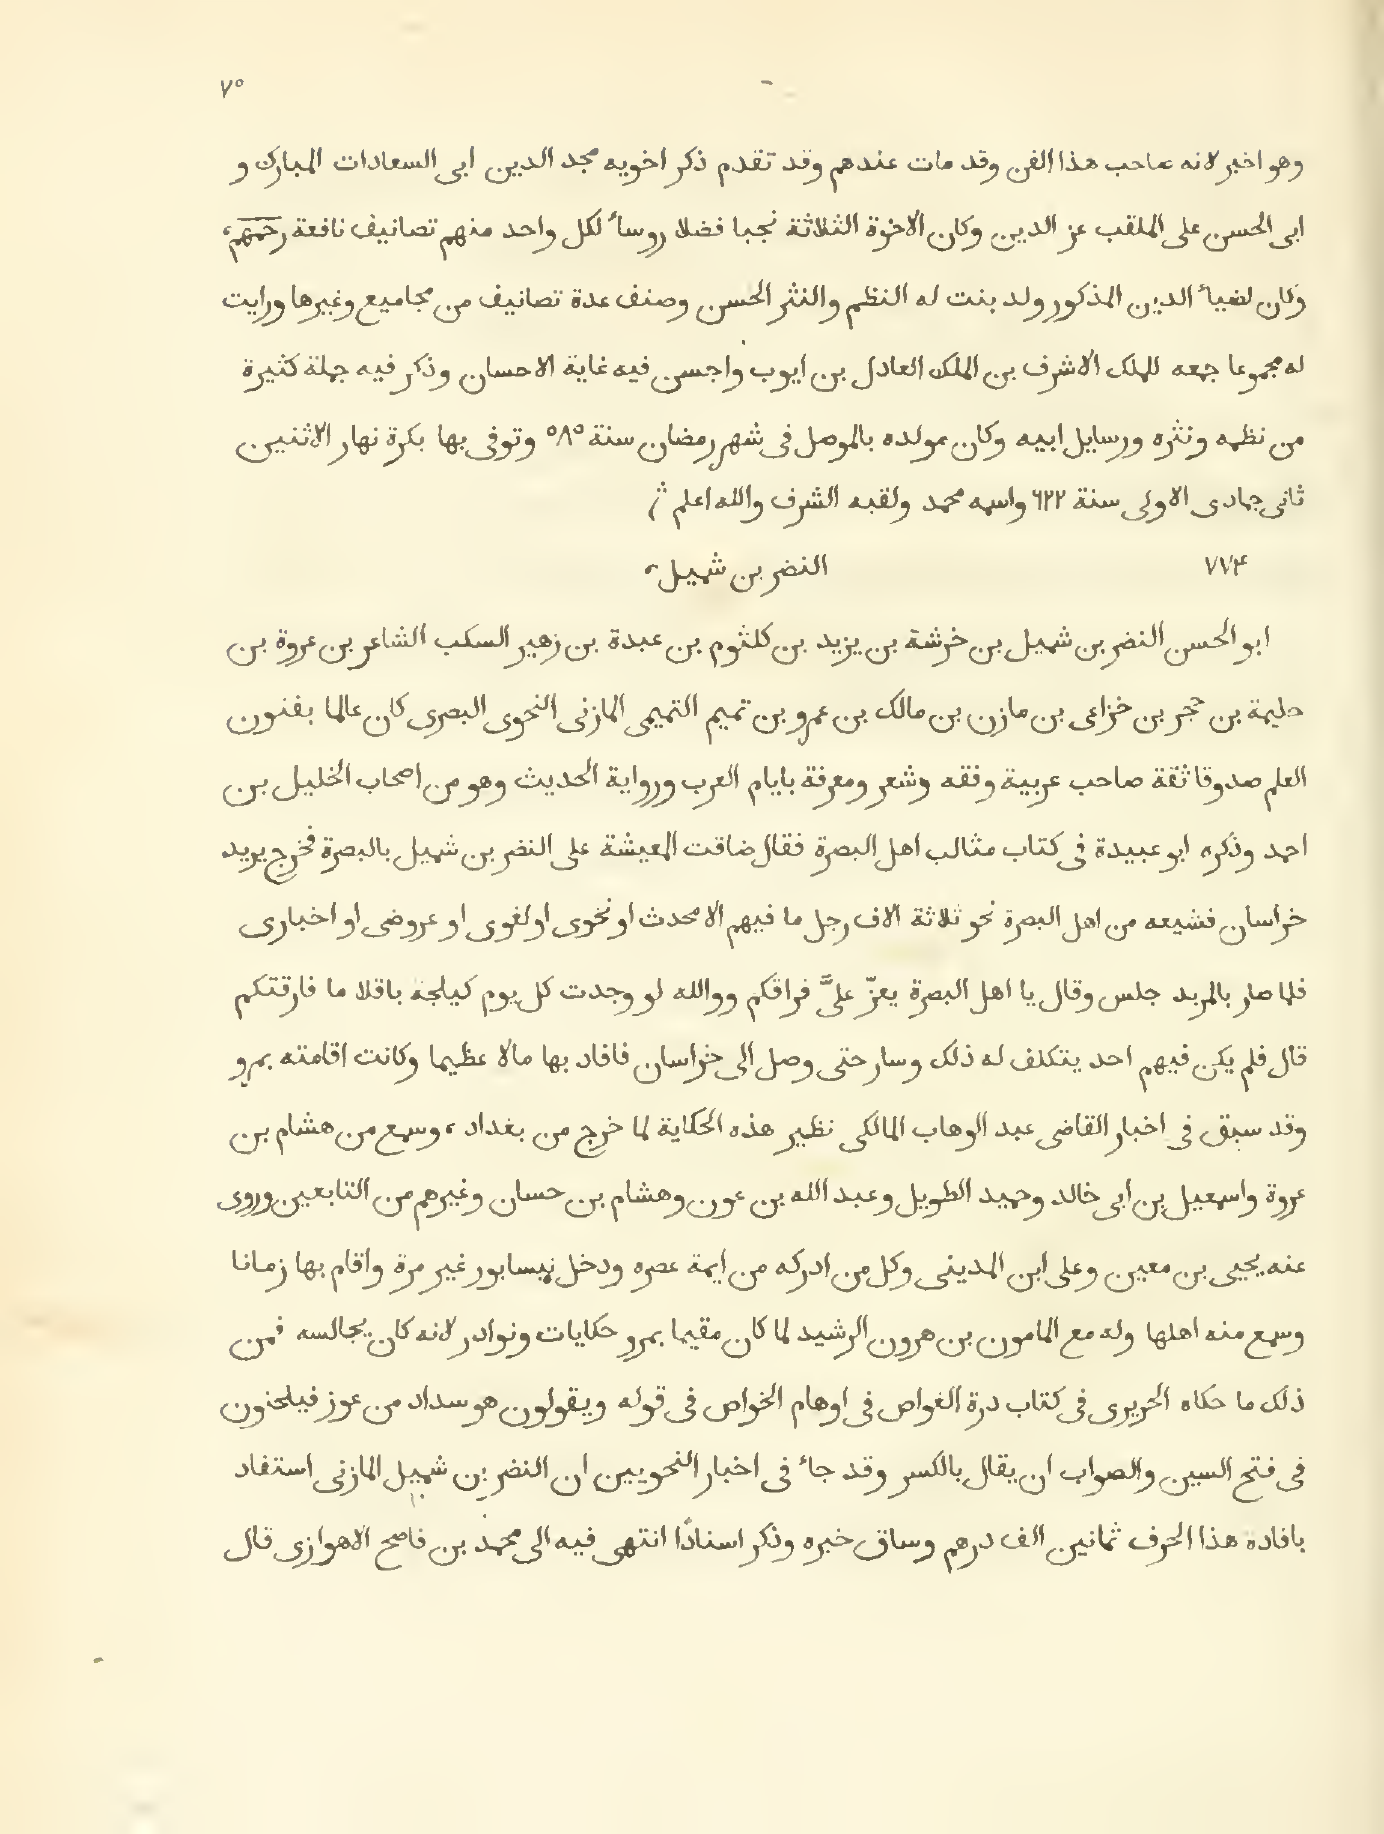 ٧٥
وهو اخبر لانه صاحب هذا الفن وقد مات عندهم وقد تقدم ذكر اخويه مجد الدين ابى السعادات المبارك و
ابى الحسن على الملقب عز الدين وكان الاخوة الثلاثة نجبا فضلا روساء لكل واحد منهم تصانيف نافعة رحمهم
وكان لضياء الدين المذكور ولد بنت له النظم والنثر الحسن وصنف عدة تصانيف من مجاميع وغيرها ورايت
له مجموعا جمعه للملك الاشرف بن الملك العادل بن ايوب واحسن فيه غاية الاحسان وذكر فيه جملة كثيرة
من نظمه ونثره ورسايل ابيه وكان مولده بالموصل فى شهر رمضان سنة ٥٨٥ وتوفى بها بكرة نهار الاثنين
ثانى جمادى الاولى سنة ٦٢٢ واسمه محمد ولقبه الشرف والله اعلم
٧٧۴ النضر بن شميل
ابو الحسن النضر بن شميل بن خرشة بن يزيد بن كلثوم بن عبدة بن زهير السكب الشاعر بن عروة بن
حليمة بن حجر بن خزاعى بن مازن بن مالك بن عمرو بن تميم التميمى المازنى النحوى البصرى كان عالما بفنون
العلم صدوقا ثقة صاحب عربية وفقه وشعر ومعرفة بايام العرب ورواية الحديث وهو من اصحاب الخليل بن
احمد وذكره ابو عبيدة فى كتاب مثالب اهل البصرة فقال ضاقت المعيشة على النضر بن شميل بالبصرة فخرج يريد
خراسان فشيعه من اهل البصرة نحو ثلاثة الاف رجل ما فيهم الا محدث او نحوى او لغوى او عروضى او اخبارى
فلما صار بالمربد جلس وقال يا اهل البصرة يعزّ علىَّ فراقكم ووالله لو وجدت كل يوم كيلجة باقلا ما فارقتكم
قال فلم يكن فيهم احد يتكلف له ذلك وسار حتى وصل الى خراسان فافاد بها مالا عظيما وكانت اقامته بمرو
وقد سبق فى اخبار القاضى عبد الوهاب المالكى نظير هذه الحكاية لما خرج من بغداد، وسمع من هشام بن
عروة واسمعيل بن ابى خالد وحميد الطويل وعبد الله بن عون وهشام بن حسان وغيرهم من التابعين وروى
عنه يحيى بن معين وعلى ابن المدينى وكل من ادركه من ايمة عصره ودخل نيسابور غير مرة واقام بها زمانا
وسمع منه اهلها وله مع المامون بن هرون الرشيد لما كان مقيما بمرو حكايات ونوادر لانه كان يجالسه فمن
ذلك ما حكاه الحريرى فى كتاب درة الغواص فى اوهام الخواص فى قوله ويقولون هو سداد من عوز فيلحنون
فى فتح السين والصواب ان يقال بالكسر وقد جاء فى اخبار النحويين ان النضر بن شميل المازنى استفاد
بافادة هذا الحرف ثمانين الف درهم وساق خبره وذكر اسنادًا انتهى فيه الى محمد بن فاصح الاهوازى قال